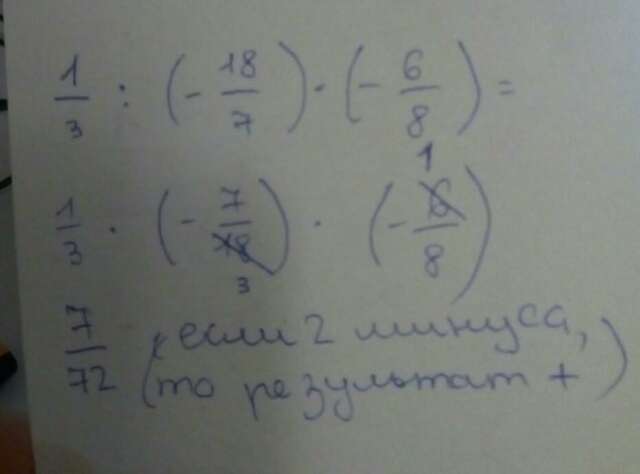 1/3 : (- 18/7) · (- 6/8) =
1
1/3 · (- 7/18) · (- 6/8)
3
7/72 (если 2 минуса,
то результат +)